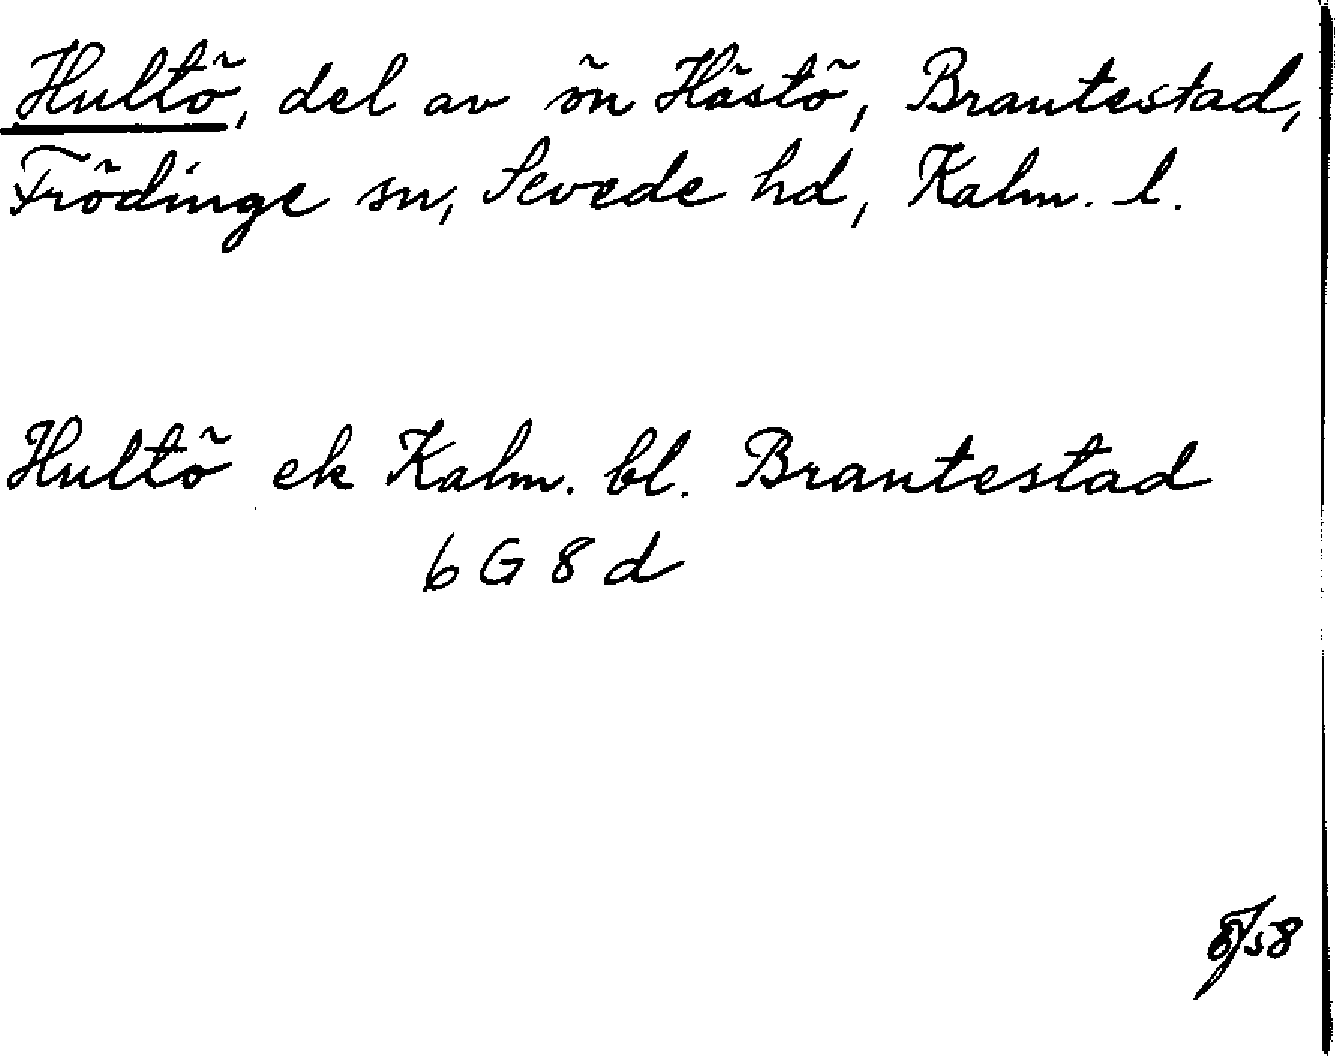 Hultö, del av ön Hästö, Brantestad,
Frödinge sn, Sevede hd, Kalm. l.
Hultö ek Kalm. bl. Brantestad
6 G 8 d